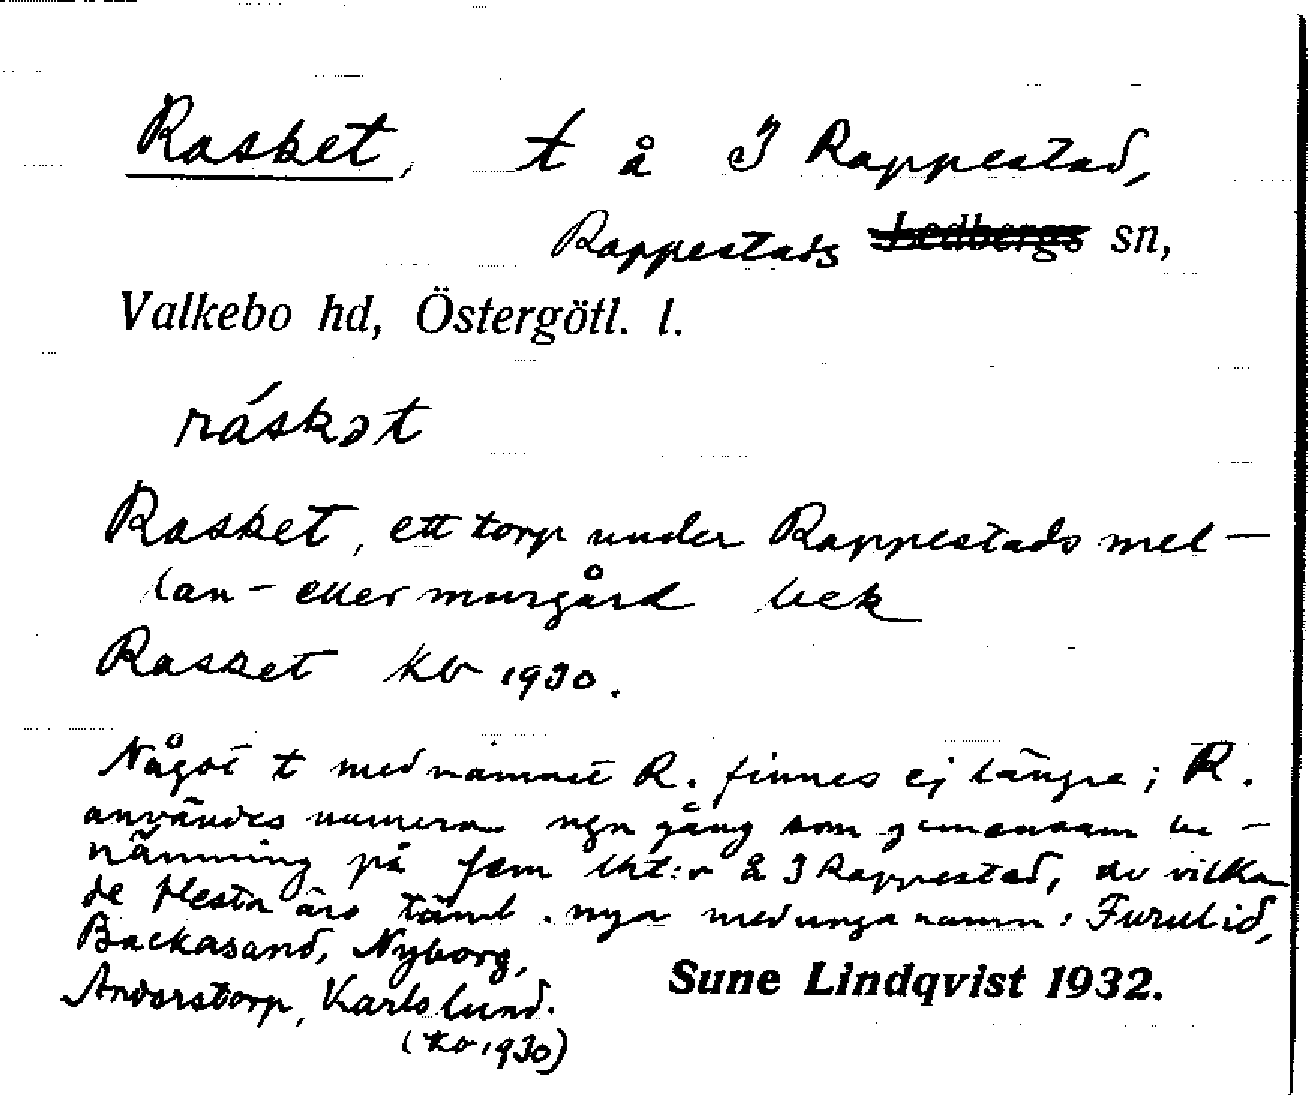 Rasket, t å 3 Rappestad,
Rappestads Ledbergs sn,
Valkebo hd, Östergötl. l.
ráskət
Rasket, ett torp under Rappestads mel-
lan- eller murgård bek
Rasket kb 1930.
Något t med namnet R. finnes ej längre; R.
användes numera ngn gång som gemensam be-
nämning på fem lht:r å 3 Rappestad, av vilka
de flesta äro täml. nya med unga namn: Furulid,
Backasand, Nyborg,
Anderstorp, Karlslund.
(kb 1930)
Sune Lindqvist 1932.